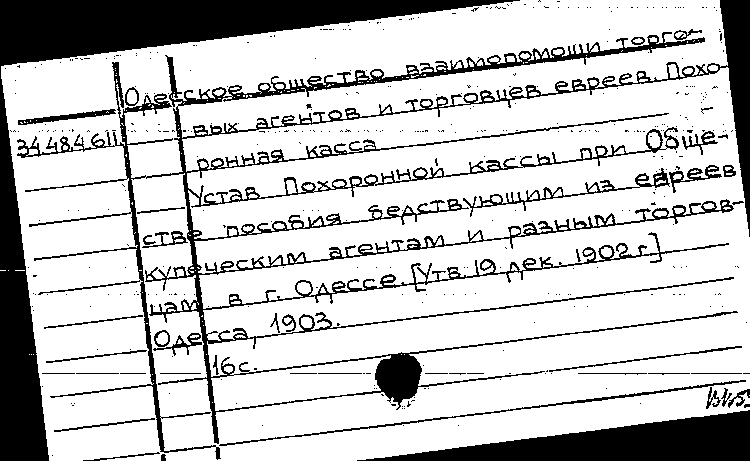 Одесское общество взаимопомощи торго-
вых агентов и торговцев евреев. Похо-
34.484.611.
ронная касса
Устав Похоронной кассы при Обще-
стве пособия бедствующим из евреев
купеческим агентам и разным торгов-
цам в г. Одессе. [Утв. 19 дек. 1902 г.]
Одесса, 1903.
16 с.